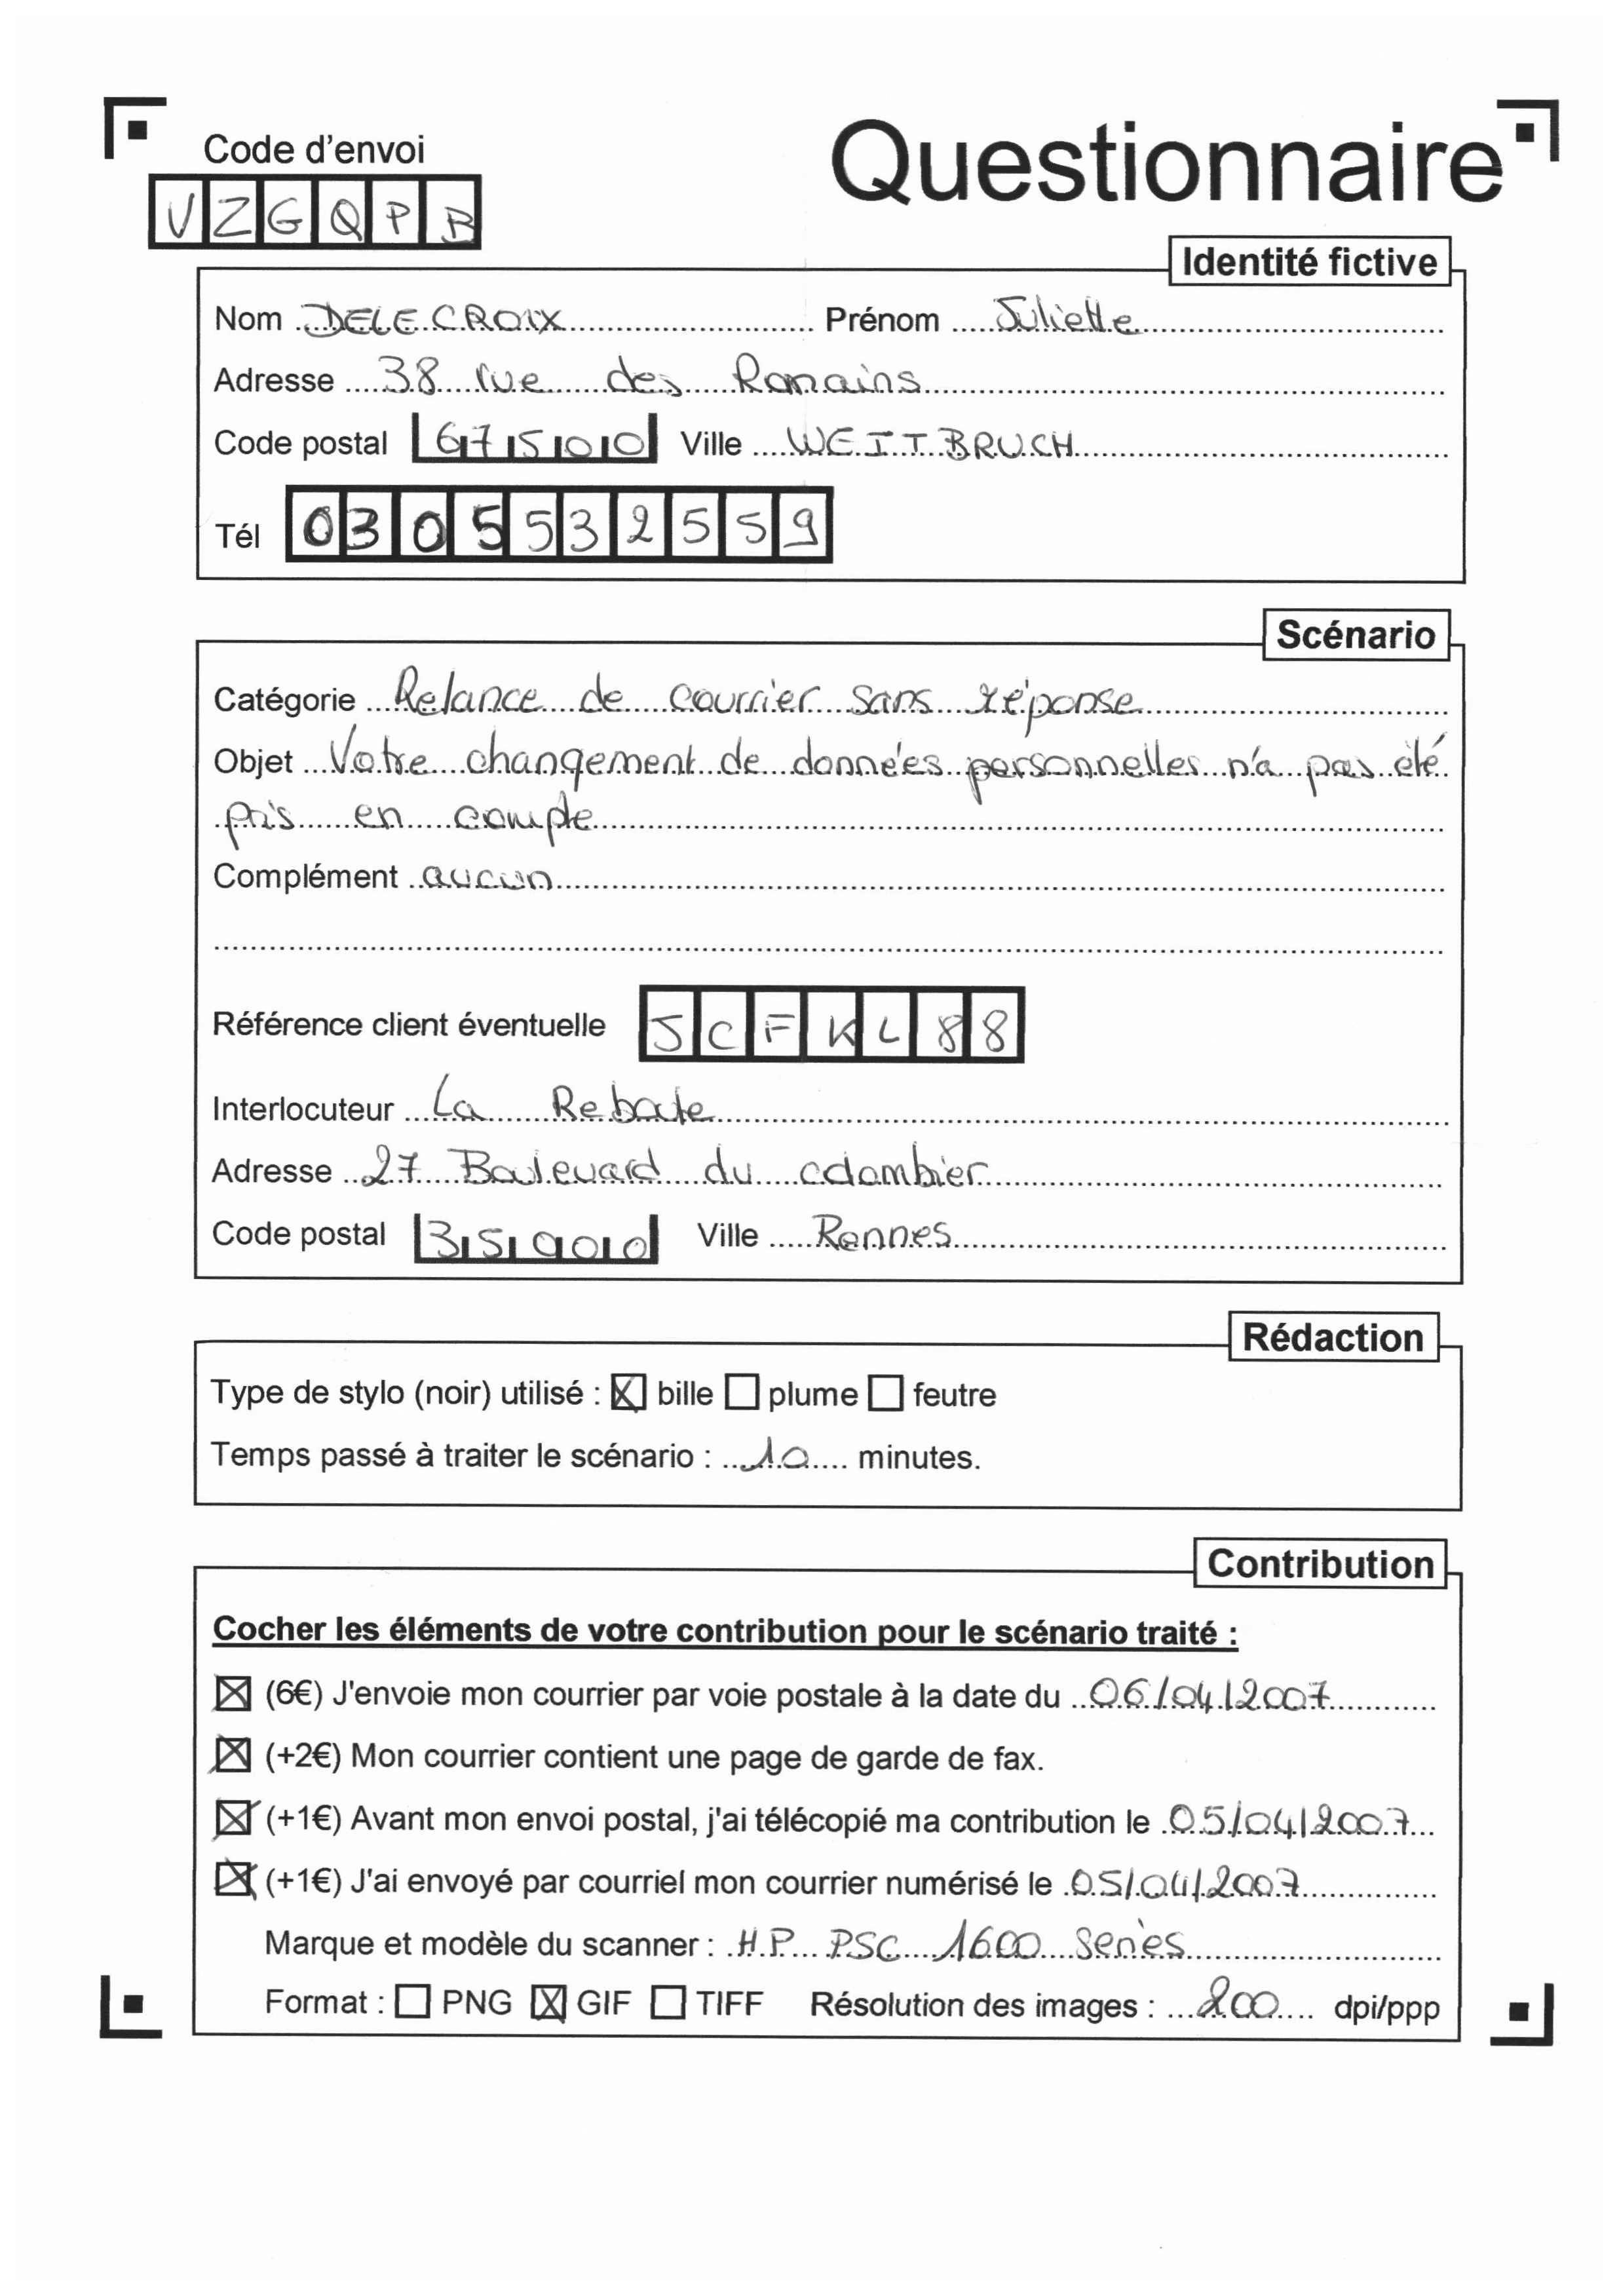 Code d'envoi
Questionnaire
VZGQPB
Identité fictive
Nom DELECROIX Prénom Juliette
Adresse 38 rue des Romains
Code postal 67500 Ville WEITBRUCH
Tél 0305532559
Scénario
Catégorie Relance de courrier sans réponse
Objet Votre changement de données personnelles n'a pas été
pris en compte
Complément aucun
Référence client éventuelle JCFKL88
Interlocuteur La Rebate
Adresse 27 Boulevard du colombier
Code postal 35900 Ville Rennes
Rédaction
Type de stylo (noir) utilisé : ☒ bille ☐ plume ☐ feutre
Temps passé à traiter le scénario : 10 minutes.
Contribution
Cocher les éléments de votre contribution pour le scénario traité :
☒ (6€) J'envoie mon courrier par voie postale à la date du 06/04/2007
☒ (+2€) Mon courrier contient une page de garde de fax.
☒ (+1€) Avant mon envoi postal, j'ai télécopié ma contribution le 05/04/2007
☒ (+1€) J'ai envoyé par courriel mon courrier numérisé le 05/04/2007
Marque et modèle du scanner : HP PSC 1600 series
Format : ☐ PNG ☒ GIF ☐ TIFF Résolution des images : 200 dpi/ppp